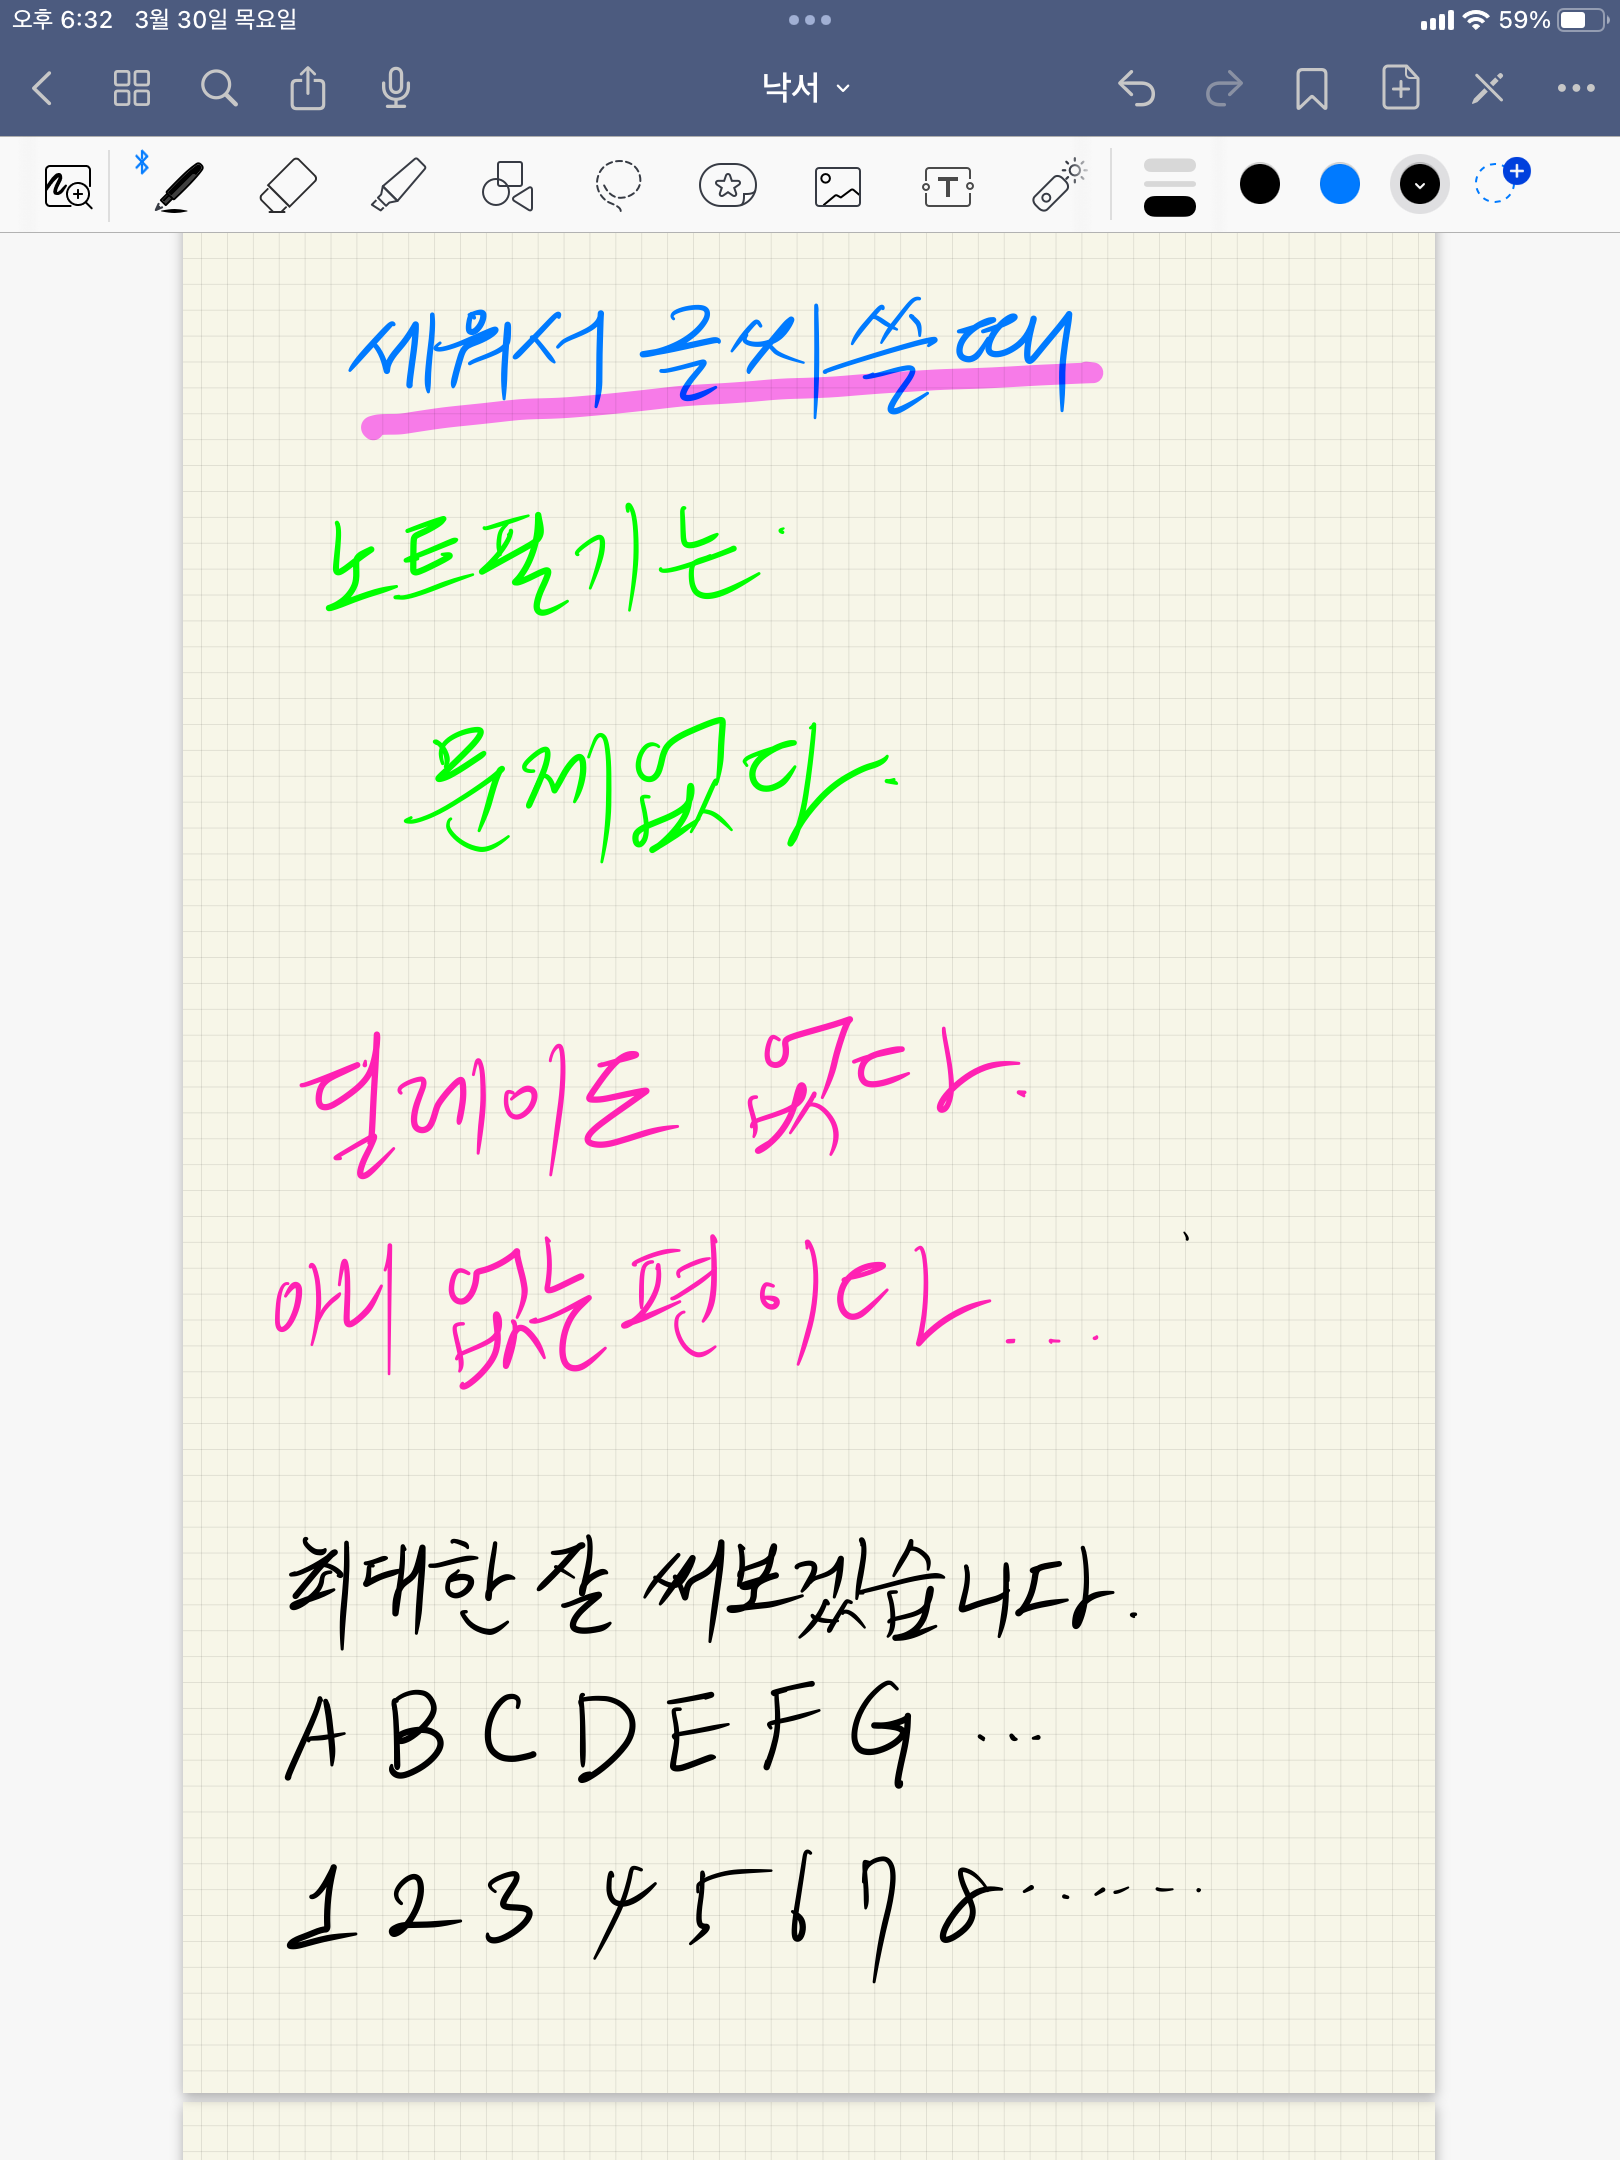 오후 6:32 3월 30일 목요일 59%
낙서
T
세워서 글씨 쓸 때
노트필기는.
문제없다.
딜레이도 없다.
아니 없는편이다....
최대한 잘 써보겠습니다.
A B C D E F G ...
1 2 3 4 5 6 7 8.......